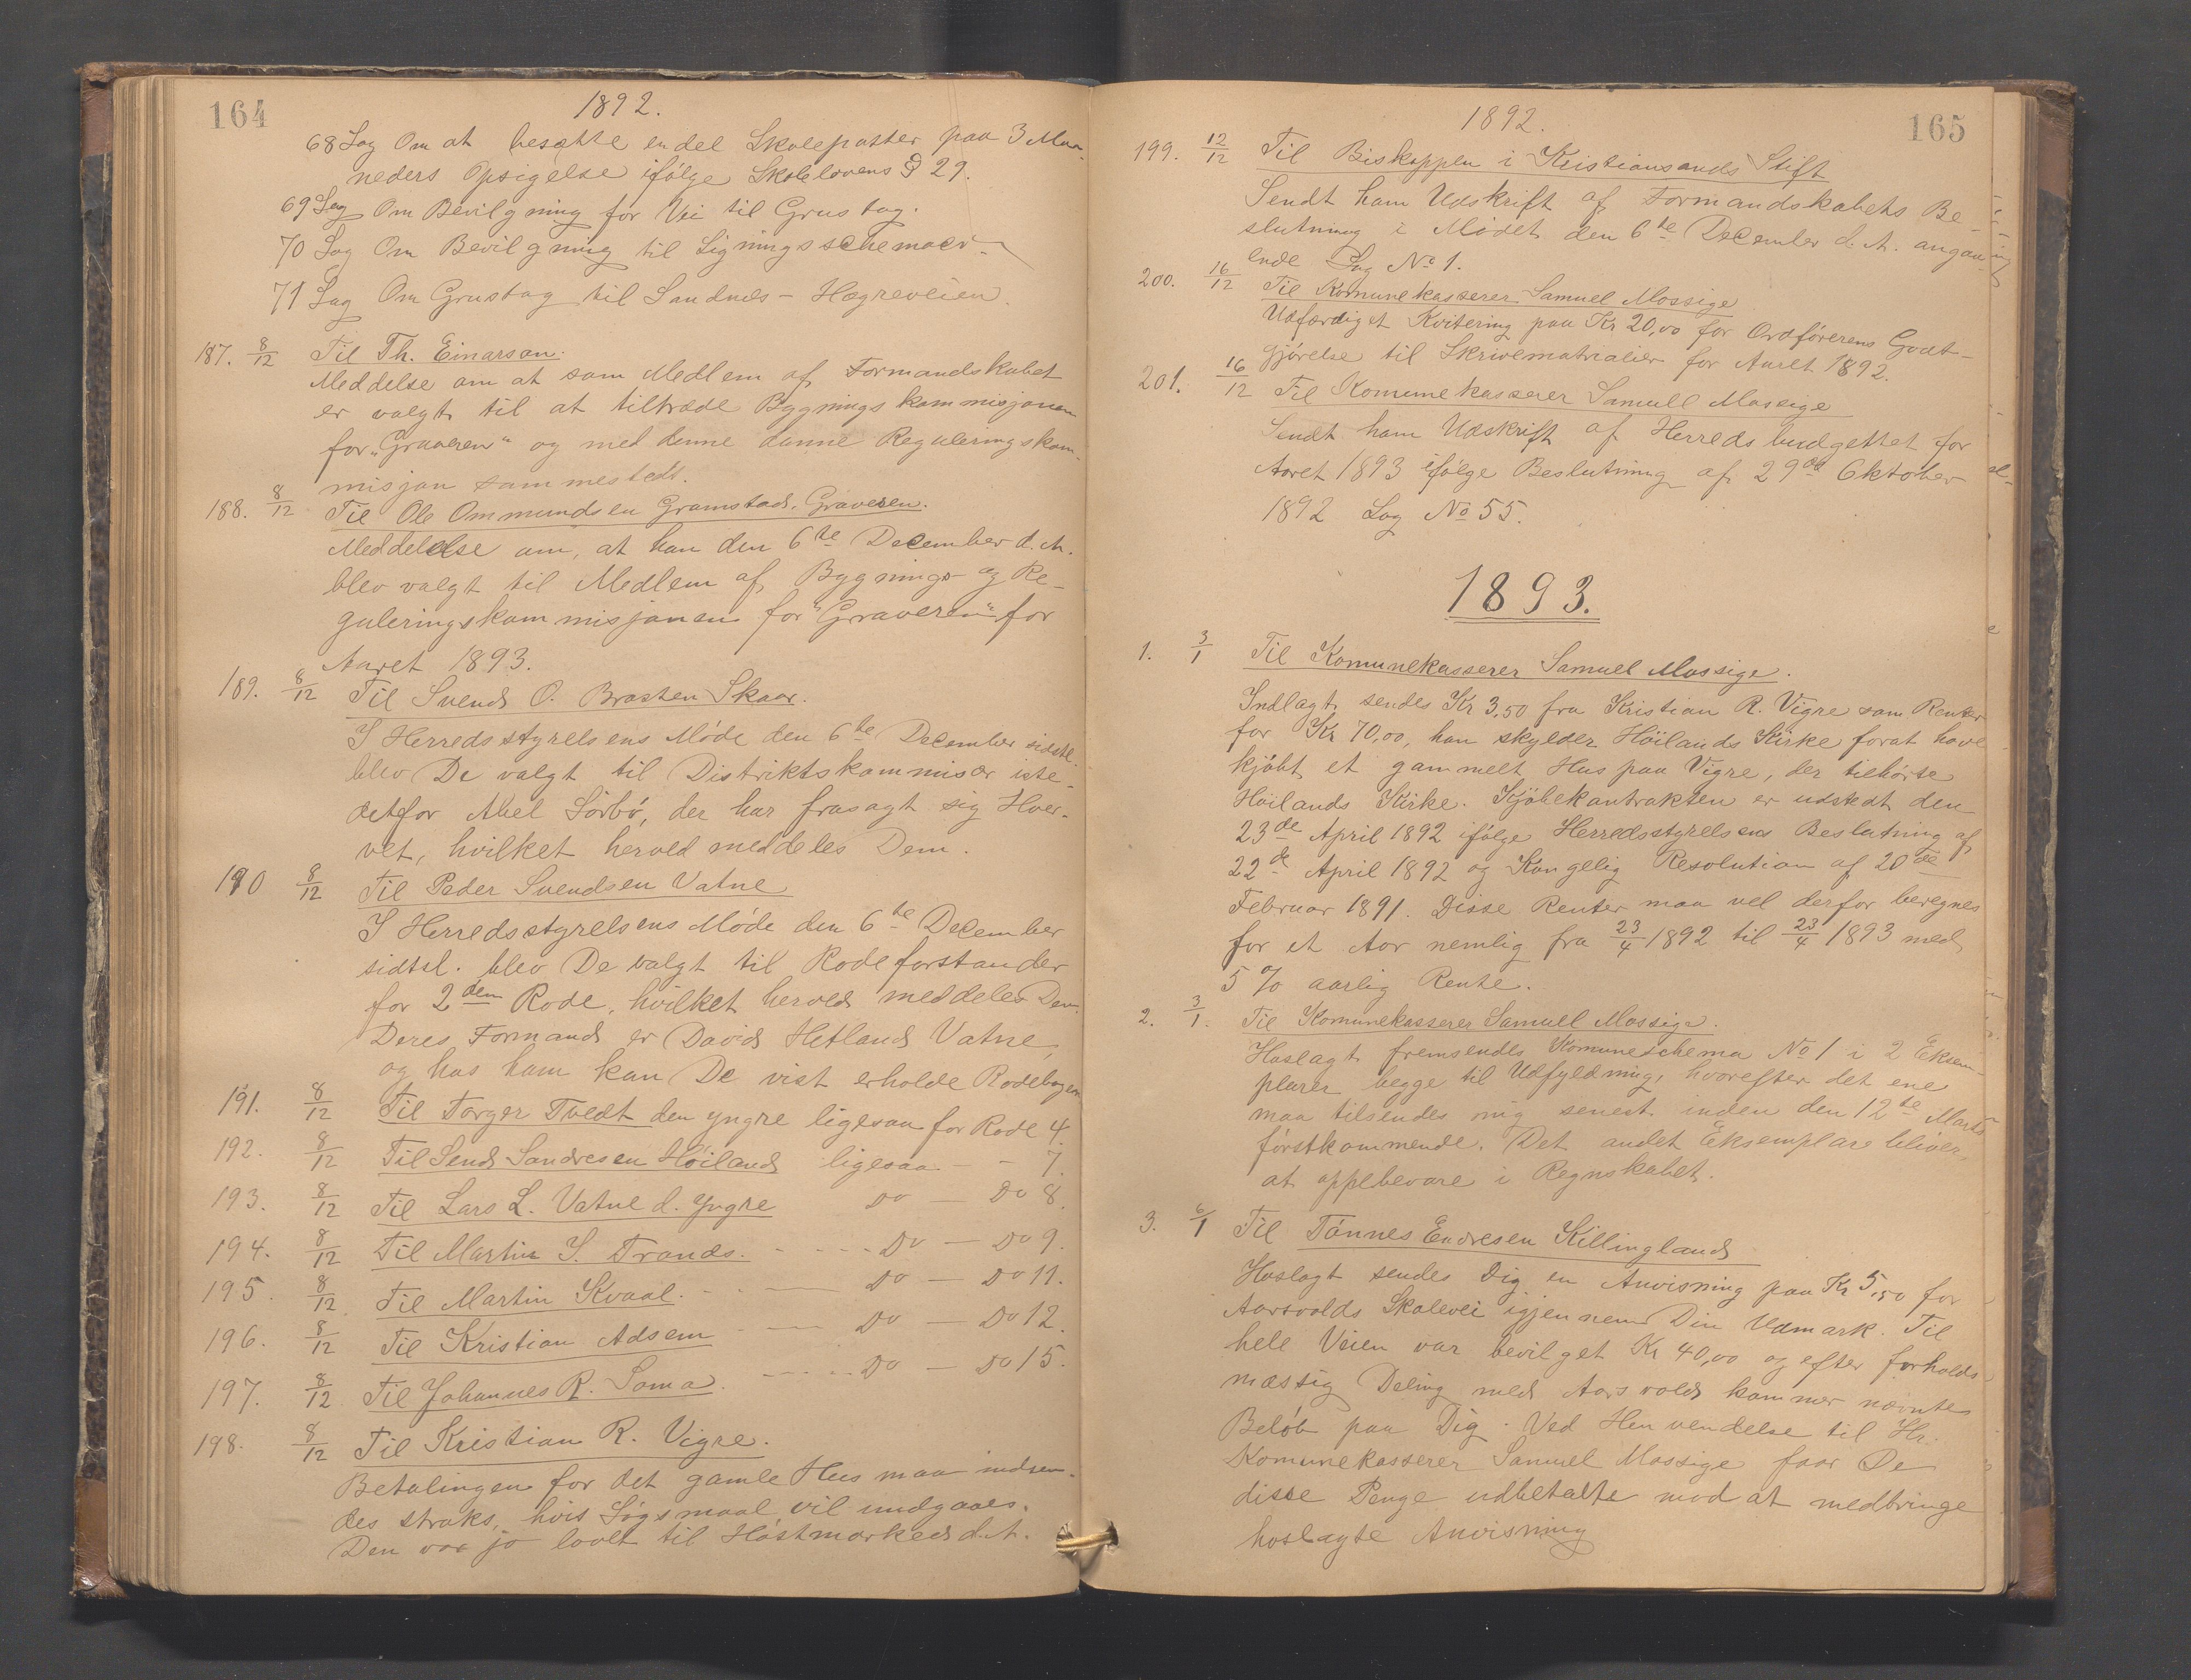 164
1892.
68 Sag Om at besætte en del Skoleposter paa 3 Maa-
neders Opsigelse ifølge Skolelovens § 29.
69 Sag Om Bevilgning for Vei til Grustag.
70 Sag Om Bevilgning til Ligningsschemaer.
71 Sag Om Grustag til Sandnes - Høgreveien.
187. 8/12 Til Th. Einarson.
Meddelse om at som Medlem af Formandskabet
er valgt til at tiltræde Bygningskommisjonen
for "Graveren" og med denne danne Reguleringskom-
misjon sammesteds.
188. 8/12 Til Ole Ommundsen Gramstad, Graveren.
Meddelelse om, at han den 6te December d. A.
blev valgt til Medlem af Bygnings- og Re-
guleringskommisjonen for "Graveren" for
Aaret 1893.
189. 8/12 Til Svend O. Brasten Skaar.
I Herredsstyrelsens Møde den 6te December sidstl.
blev De valgt til Distriktskommisær iste-
detfor Abel Sørbø, der har frasagt sig Hver-
vet, hvilket herved meddeles Dem.
190 8/12 Til Peder Svendsen Vatne
I Herredsstyrelsens Møde den 6te December
sidstl. blev De valgt til Rodeforstander
for 2den Rode, hvilket herved meddeles Dem.
Deres Formand er David Hetland Vatne,
og hos ham kan De vist erholde Rodebogen
191. 8/12 Til Torger Tvedt den yngre ligesaa for Rode 4.
192. 8/12 Til Send Sandresen Høiland ligesaa - - 7.
193. 8/12 Til Lars L. Vatne d. yngre Do - Do 8.
194. 8/12 Til Martin S. Trones. - - - - Do - Do 9.
195. 8/12 Til Martin Kvaal. - - Do - Do 11.
196. 8/12 Til Kristian Adsem - - Do - Do 12.
197. 8/12 Til Johannes R. Soma. - - - - Do - Do 15.
198. 8/12 Til Kristian R. Vigre.
Betalingen for det gamle Hus maa indsen-
des straks, hvis Søgsmaal vil undgaaes.
Den var jo lovet til Høstmarked d. A.
165
1892.
199. 12/12 Til Biskoppen i Kristiansands Stift
Sendt ham Udskrift af Formandskabets Be-
slutning i Mødet den 6te December d. A. angaa-
ende Sag No 1.
200. 16/12 Til Komunekasserer Samuel Mossige
Udfærdiget Kvitering paa Kr 20,00 for Ordførerens Godt-
gjørelse til Skrivematrialier for Aaret 1892.
201. 16/12 Til Komunekasserer Samuell Mossige
Sendt ham Udskrift af Herredsbudgettet for
Aaret 1893 ifølge Beslutning af 29de Oktober
1892 Sag No 55.
1893.
1. 3/1 Til Komunekasserer Samuel Mossige.
Indlagt sendes Kr 3,50 fra Kristian R. Vigre som Renter
for Kr 70,00, han skylder Høilands Kirke forat have
kjøbt et gammelt Hus paa Vigre, der tilhørte
Høilands Kirke. Kjøbekontrakten er udstedt den
23de April 1892 ifølge Herredsstyrelsens Beslutning af
22de April 1892 og Kongelig Resolution af 20de
Februar 1891. Disse Renter maa vel derfor beregnes
for et Aar nemlig fra 23/4 1892 til 23/4 1893 med
5 % aarlig Rente.
2. 3/1. Til Komunekasserer Samuell Mossige.
Hoslagt fremsendes Komuneschema No 1 i 2 Eksem-
plarer begge til Udfyldning, hvorefter det ene
maa tilsendes mig senest inden den 12te Marts
førstkommende. Det andet Eksemplare bliver
at oppebevare i Regnskabet.
3. 6/1 Til Tønnes Endresen Killingland
Hoslagt sendes Dig en Anvisning paa Kr 5,50 for
Aarsvolds Skolevei igjennem Din Udmark. Til
hele Veien var bevilget Kr 40,00 og efter forholds-
mæssig Deling med Aarsvold kommer nævnte
Beløb paa Dig. Ved Henvendelse til Hr.
Komunekasserer Samuel Mossige faar De
disse Penge udbetalte mod at medbringe
hoslagte Anvisning